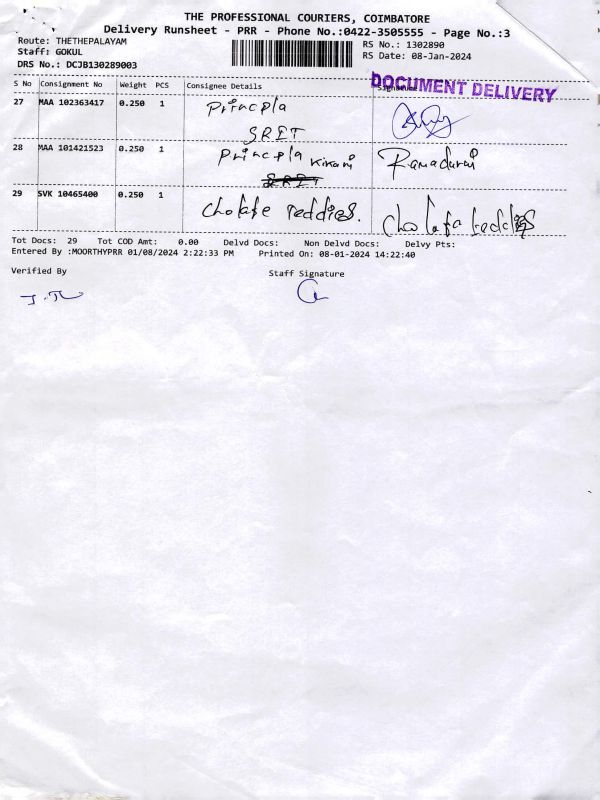 THE PROFESSIONAL COURIERS, COIMBATORE
Delivery Runsheet - PRR - Phone No.:0422-3505555 - Page No.:3
Route: THETHEPALAYAM
Staff: GOKUL
DRS No.: DCJB130289003
RS No.: 1302890
RS Date: 08-Jan-2024
S No Consignment No Weight PCS Consignee Details Signature
DOCUMENT DELIVERY
27 MAA 102363417 0.250 1 Princpla
SRET
28 MAA 101421523 0.250 1 Princpla Kikani Ramadurai
SRET
29 SVK 10465400 0.250 1 Cholate reddies.
Tot Docs: 29 Tot COD Amt: 0.00 Delvd Docs: Non Delvd Docs: Delvy Pts:
Entered By :MOORTHYPRR 01/08/2024 2:22:33 PM Printed On: 08-01-2024 14:22:40
Verified By Staff Signature